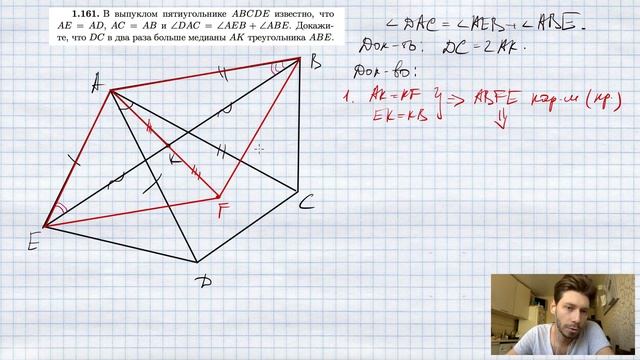 1.161. В выпуклом пятиугольнике ABCDE известно, что
AE = AD, AC = AB и ∠DAC = ∠AEB + ∠ABE. Докажи-
те, что DC в два раза больше медианы AK треугольника ABE.
∠DAC = ∠AEB + ∠ABE.
Док-ть: DC = 2AK.
Док-во:
1. AK = KF
EK = KB
=> ABFE пар-м (пр.)
⇓
A
B
K
C
F
E
D